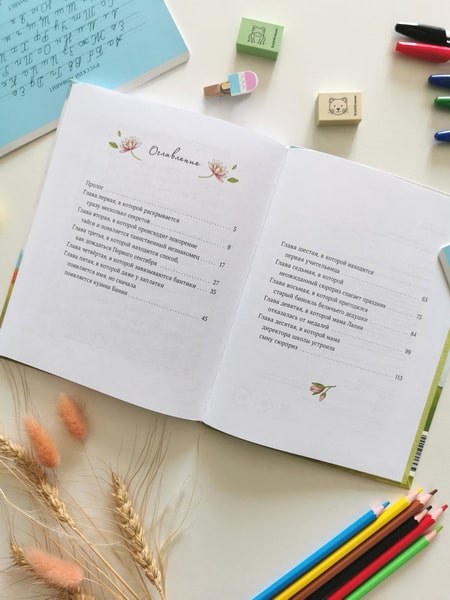 РУССКИЙ АЛФАВИТ
Оглавление
Пролог
Глава первая, в которой раскрывается
сразу несколько секретов 5
Глава вторая, в которой происходит покорение
тайги и появляется таинственный незнакомец 9
Глава третья, в которой находится способ,
как дождаться Первого сентября 17
Глава четвёртая, в которой завязываются бантики 27
Глава пятая, в которой даже у заплатки 35
появляется имя, но сначала
появляется кулина Ванна 45
Глава шестая, в которой находится
первая учительница
Глава седьмая, в которой
неожиданный сюрприз спасает праздник 63
Глава восьмая, в которой пригодился
старый бинокль беличьего дедушки 75
Глава девятая, в которой мама Лапин
отказалась от медалей 84
Глава десятая, в которой мама
директора школы устроила 99
сыну сюрприз 113